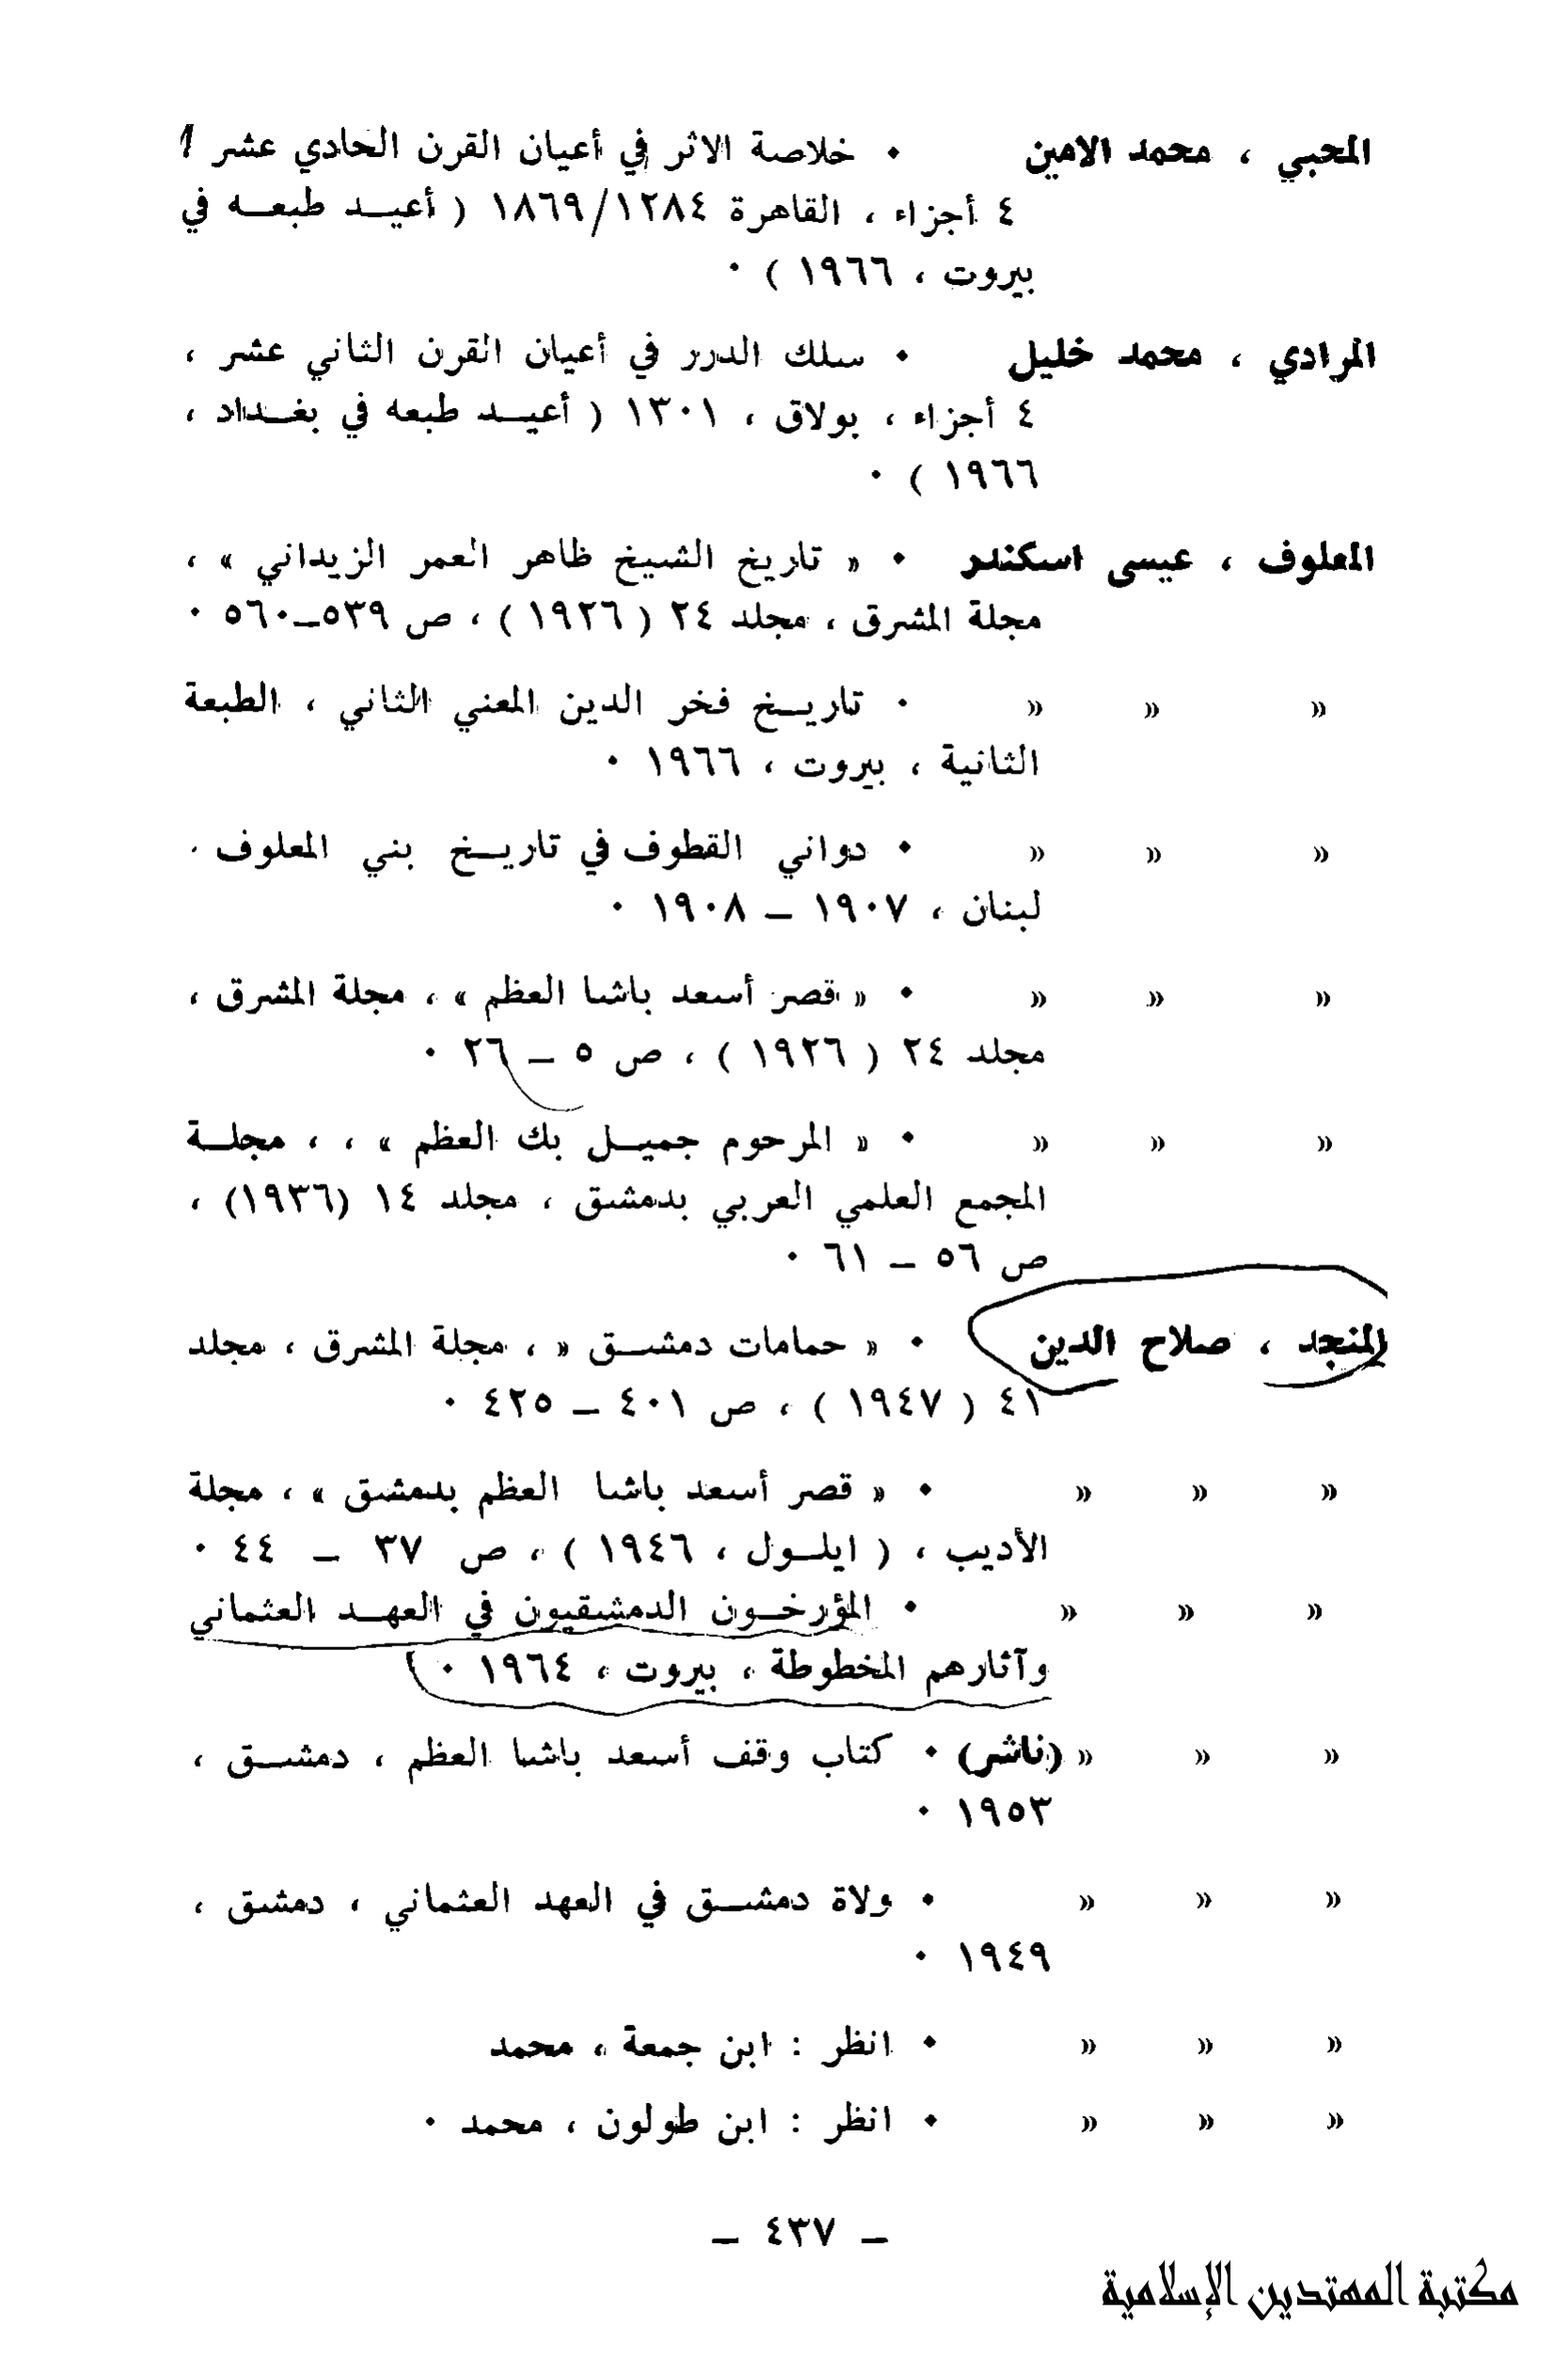 المحبي ، محمد الامين ٠ خلاصة الاثر في أعيان القرن الحادي عشر
٤ أجزاء ، القاهرة ١٢٨٤/١٨٦٩ ( أعيد طبعه في
بيروت ، ١٩٦٦ ) ٠
المرادي ، محمد خليل ٠ سلك الدرر في أعيان القرن الثاني عشر ،
٤ أجزاء ، بولاق ، ١٣٠١ ( أعيد طبعه في بغداد ،
١٩٦٦ ) ٠
المعلوف ، عيسى اسكندر ٠ « تاريخ الشيخ ظاهر العمر الزيداني » ،
مجلة المشرق ، مجلد ٢٤ ( ١٩٢٦ ) ، ص ٥٣٩–٥٦٠ ٠
« « « ٠ تاريخ فخر الدين المعني الثاني ، الطبعة
الثانية ، بيروت ، ١٩٦٦ ٠
« « « ٠ دواني القطوف في تاريخ بني المعلوف ٠
لبنان ، ١٩٠٧ – ١٩٠٨ ٠
« « « ٠ « قصر أسعد باشا العظم » ، مجلة المشرق ،
مجلد ٢٤ ( ١٩٢٦ ) ، ص ٥ – ٢٦ ٠
« « « ٠ « المرحوم جميل بك العظم » ، ، مجلة
المجمع العلمي العربي بدمشق ، مجلد ١٤ (١٩٣٦) ،
ص ٥٦ – ٦١ ٠
المنجد ، صلاح الدين ٠ « حمامات دمشق « ، مجلة المشرق ، مجلد
٤١ ( ١٩٤٧ ) ، ص ٤٠١ – ٤٢٥ ٠
« « « ٠ « قصر أسعد باشا العظم بدمشق » ، مجلة
الأديب ، ( ايلول ، ١٩٤٦ ) ، ص ٣٧ – ٤٤ ٠
« « « ٠ المؤرخون الدمشقيون في العهد العثماني
وآثارهم المخطوطة ، بيروت ، ١٩٦٤ ٠
« « « (ناشر) ٠ كتاب وقف أسعد باشا العظم ، دمشق ،
١٩٥٣ ٠
« « « ٠ ولاة دمشق في العهد العثماني ، دمشق ،
١٩٤٩ ٠
« « « ٠ انظر : ابن جمعة ، محمد
« « « ٠ انظر : ابن طولون ، محمد ٠
– ٤٣٧ –
مكتبة المهتدين الإسلامية